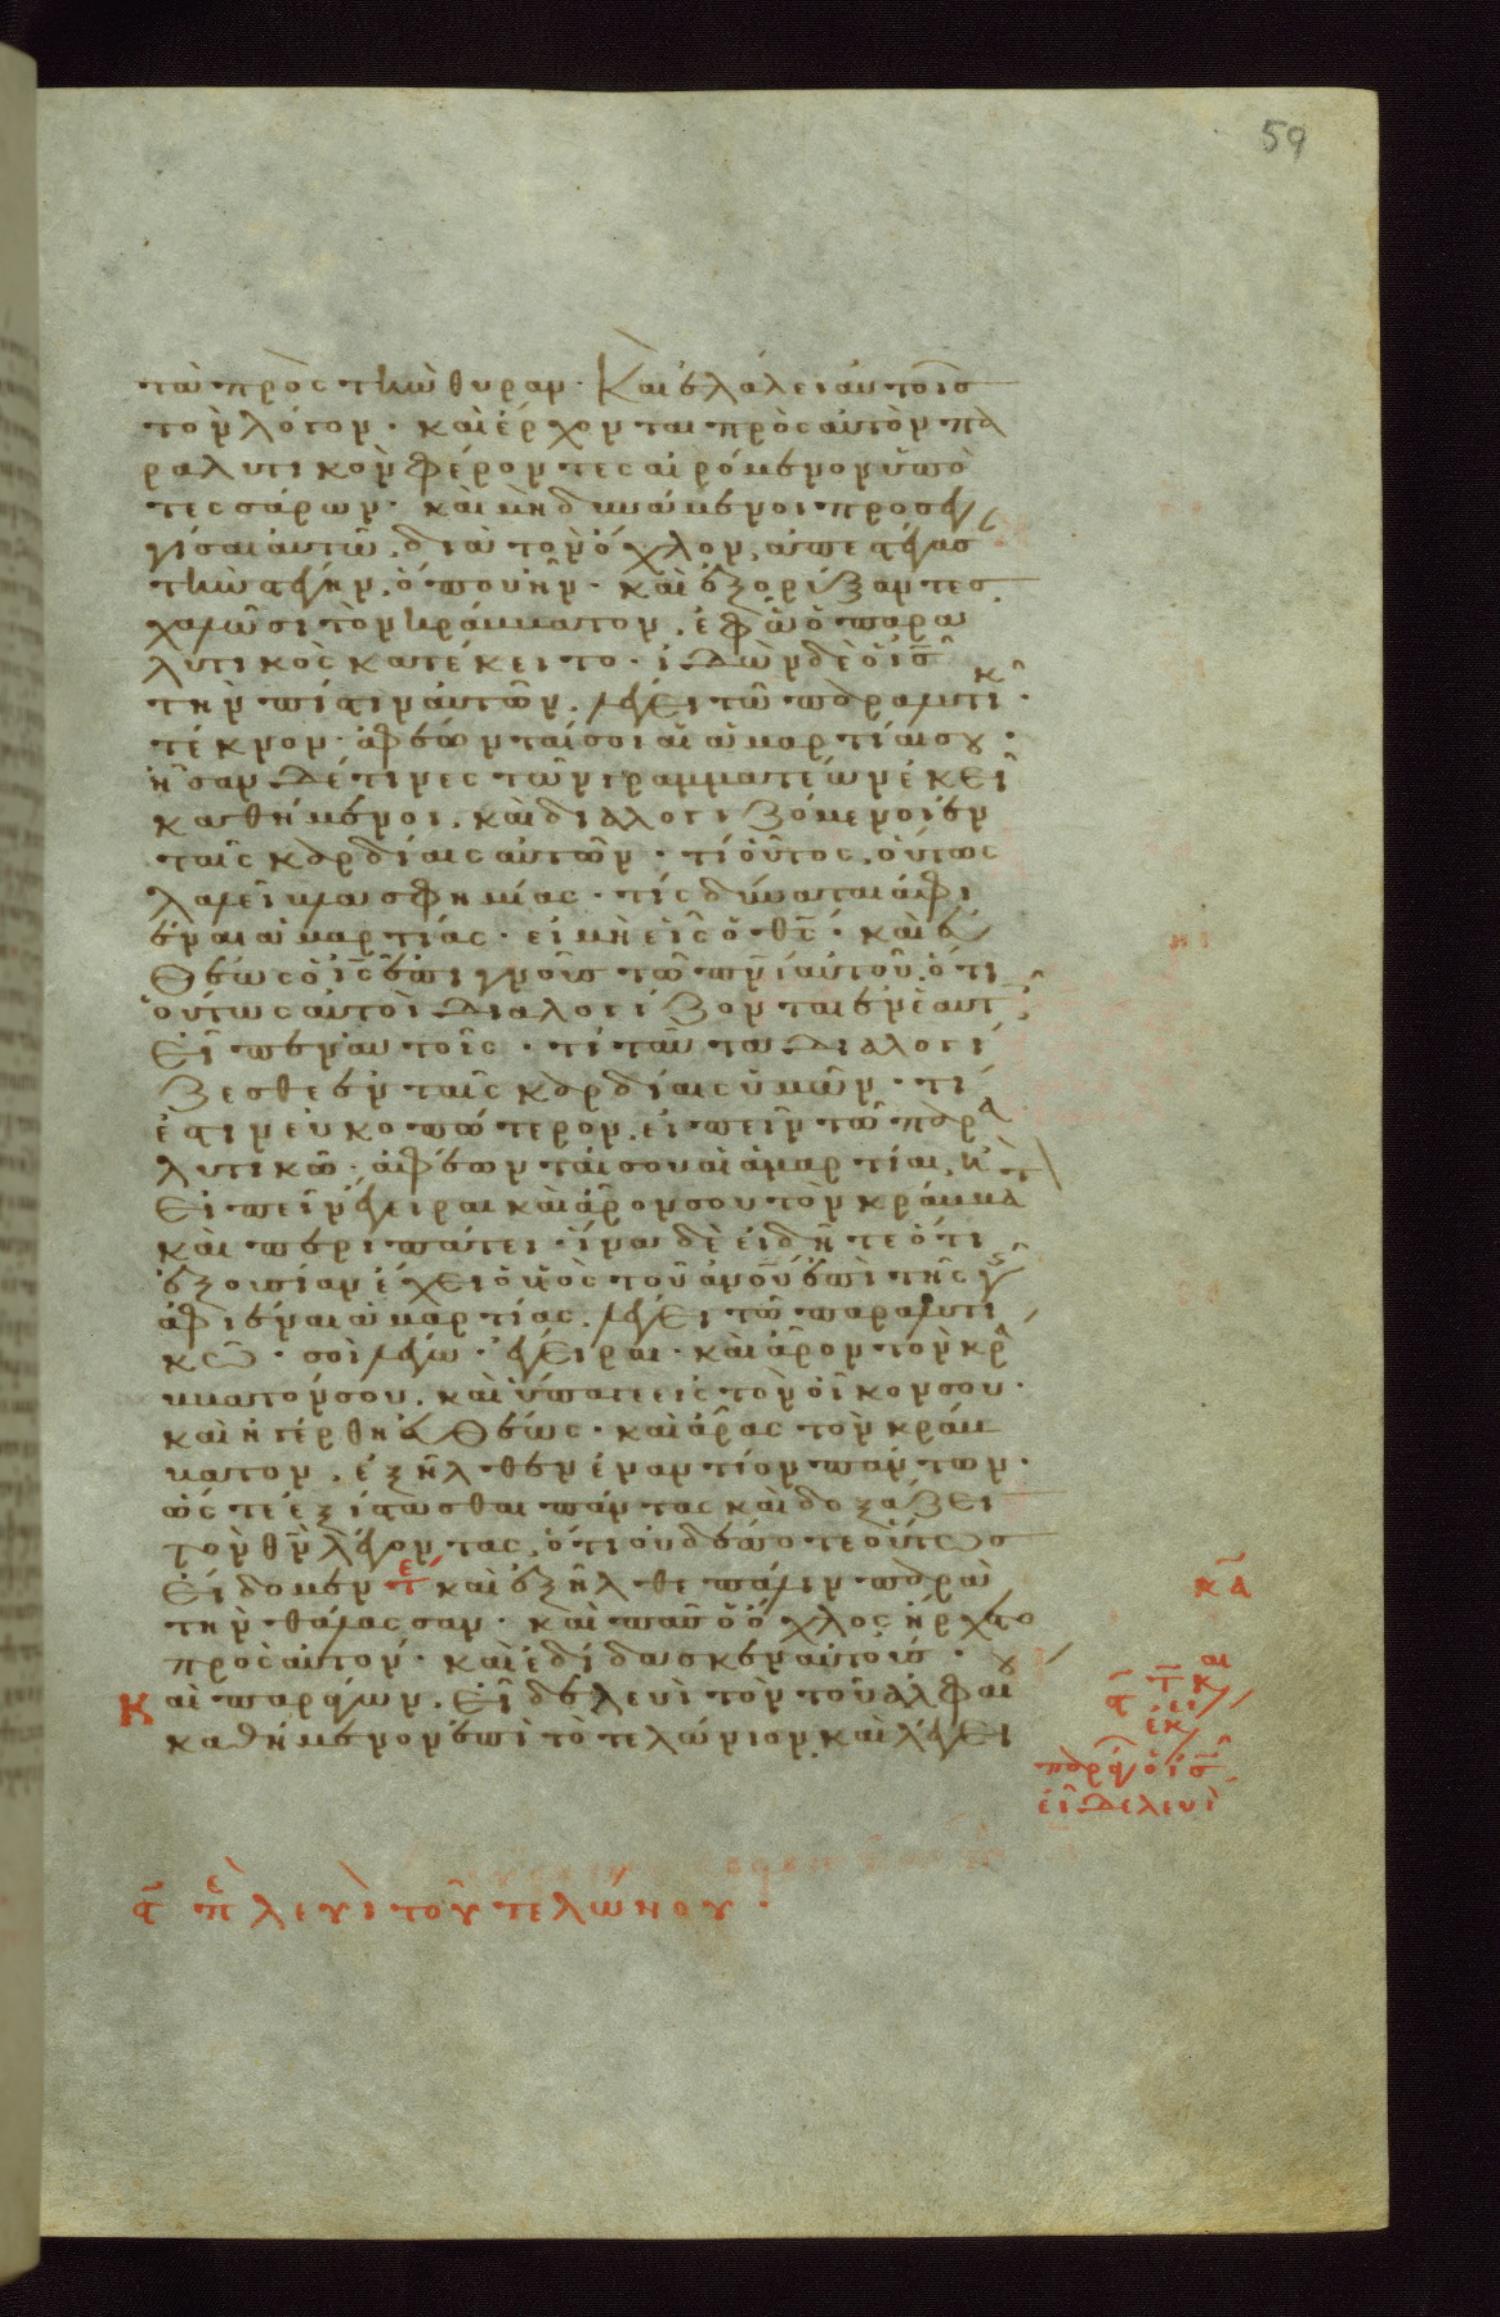 59
τὰ πρὸς τὴν θύραν· Καὶ ἐλάλει αὐτοῖσ
τὸν λόγον· καὶ ἔρχονται πρὸς αὐτὸν πα
ραλυτικὸν φέροντες αἰρόμενον ὑπὸ
τεσσάρων· καὶ μὴ δυνάμενοι προσεγ
γίσαι αὐτῶ, διὰ τὸν ὄχλον, ἀπεστέγασ
τὴν στέγην, ὅπου ἦν· καὶ ἐξορίξαντεσ
χαλῶσι τὸν κράμματον, ἐφ ὧ ὁ παρα
λυτικὸς κατέκειτο· ἰδὼν δὲ ὁ ισ
τὴν πίστιν αὐτῶν, λέγει τῶ παραλυτικ·
τέκνον· ἀφέωνταί σοι αἱ ἁμαρτίαι σου·
ἦσαν δέ τινες τῶν γραμματέων ἐκεῖ
καθήμενοι, καὶ διαλογιζόμενοι ἐν
ταῖς καρδίαις αὐτῶν· τί οὗτος, οὕτως
λαλεῖ βλασφημίας· τίς δύναται ἀφι
έναι ἁμαρτίας· εἰ μὴ εἷς ὁ θς· καὶ εὐ
θέως ὁ ις ἐπιγνοὺς τῶ πνι αὐτοῦ, ὅτι
οὕτως αὐτοὶ διαλογίζονται ἐν ἑαυτ
εἶπεν αὐτοῖς· τί ταῦτα διαλογί
ζεσθε ἐν ταῖς καρδίαις ὑμῶν· τί
ἐστιν εὐκοπώτερον, εἰπεῖν τῶ παρα
λυτικῶ· ἀφέωνταί σου αἱ ἁμαρτίαι, ἢ
εἰπεῖν ἔγειραι καὶ ἆρον σου τὸν κράμματ
καὶ περιπάτει· ἵνα δὲ εἰδῆτε ὅτι
ἐξουσίαν ἔχει ὁ υἱὸς τοῦ ανου ἐπὶ τῆς γῆς
ἀφιέναι ἁμαρτίας, λέγει τῶ παραλυτι
κῶ· σοὶ λέγω· ἔγειραι· καὶ ἆρον τὸν κρά
μματόν σου, καὶ ὕπαγε εἰς τὸν οἶκον σου·
καὶ ἠγέρθη εὐθέως· καὶ ἄρας τὸν κράμ
ματον, ἐξῆλθεν ἐναντίον πάντων·
ὥστε ἐξίστασθαι πάντας καὶ δοξάζει
τὸν θν λέγοντας, ὅτι οὐδέποτε οὕτωσ
εἴδομεν τε καὶ ἐξῆλθε πάλιν παρὰ
τὴν θάλασσαν· καὶ πᾶσ ὁ ὄχλος ἤρχετο
πρὸς αὐτόν· καὶ ἐδίδασκεν αὐτούσ·
Καὶ παράγων, εἶδε λευὶ τὸν τοῦ ἀλφαί
καθήμενον ἐπὶ τὸ τελώνιον, καὶ λέγει
κα
παράγ ὁ ισ
εἶδε λευὶ
πε λευὶ τοῦ τελώνου·